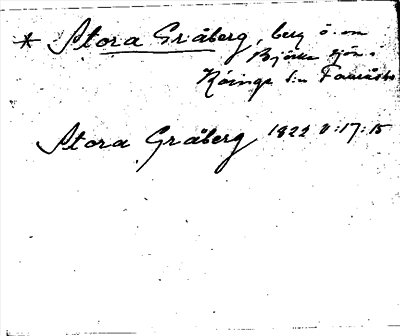 * Stora Gråberg, berg ö. om
Björke sjön i
Köinge s:n Faurås h
Stora Gråberg 1822 V:17:15